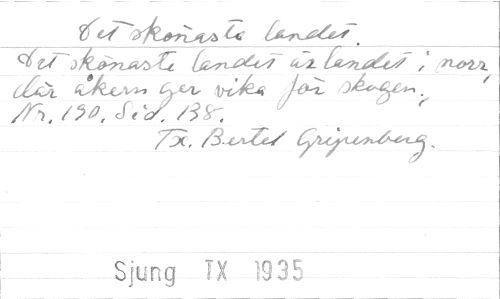 Det skönaste landet.
Det skönaste landet är landet i norr,
där åkern ger vika för skogen.
Nr. 190. Sid. 138.
Tx. Bertel Gripenberg.
Sjung TX 1935